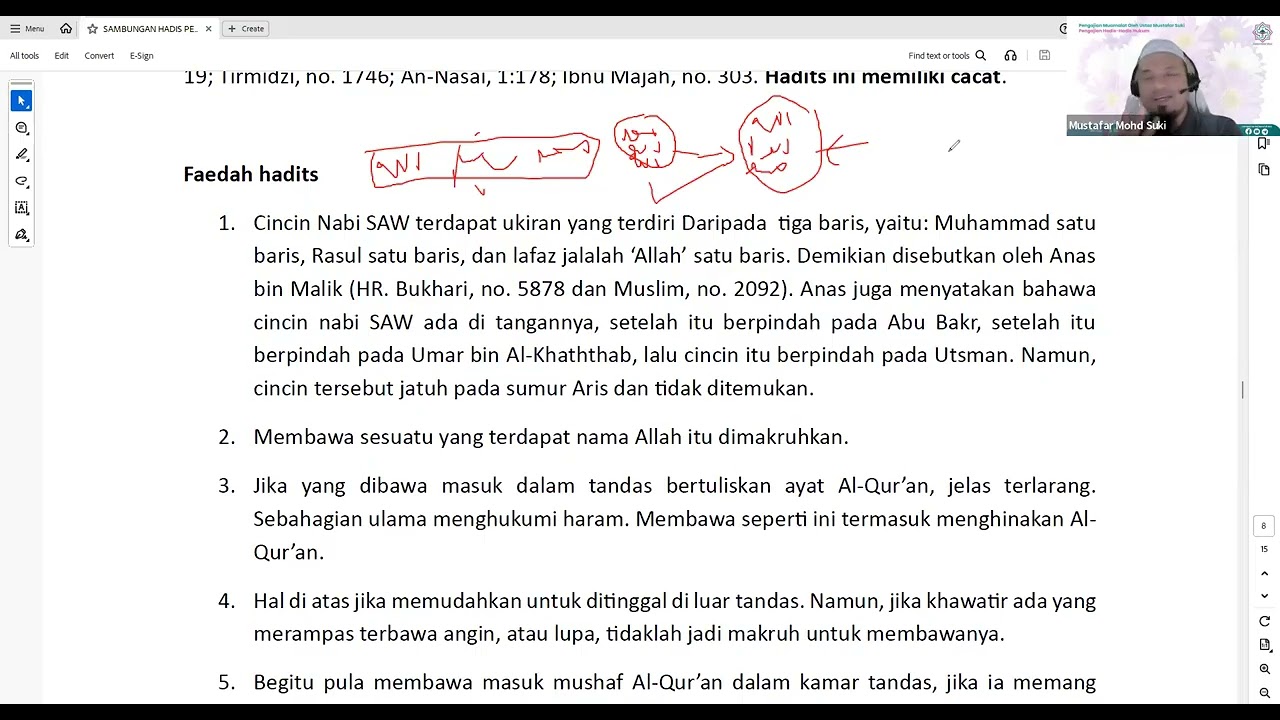 Menu
SAMBUNGAN HADIS PE..
Create
All tools
Edit
Convert
E-Sign
Find text or tools
Pengajian Muamalat Oleh Ustaz Mustafar Suki
Pengajian Hadis-Hadis Hukum
Mustafar Mohd Suki
19; Tirmidzi, no. 1746; An-Nasai, 1:178; Ibnu Majah, no. 303. Hadits ini memiliki cacat.
Faedah hadits
1. Cincin Nabi SAW terdapat ukiran yang terdiri Daripada tiga baris, yaitu: Muhammad satu
baris, Rasul satu baris, dan lafaz jalalah ‘Allah’ satu baris. Demikian disebutkan oleh Anas
bin Malik (HR. Bukhari, no. 5878 dan Muslim, no. 2092). Anas juga menyatakan bahawa
cincin nabi SAW ada di tangannya, setelah itu berpindah pada Abu Bakr, setelah itu
berpindah pada Umar bin Al-Khaththab, lalu cincin itu berpindah pada Utsman. Namun,
cincin tersebut jatuh pada sumur Aris dan tidak ditemukan.
2. Membawa sesuatu yang terdapat nama Allah itu dimakruhkan.
3. Jika yang dibawa masuk dalam tandas bertuliskan ayat Al-Qur’an, jelas terlarang.
Sebahagian ulama menghukumi haram. Membawa seperti ini termasuk menghinakan Al-
Qur’an.
4. Hal di atas jika memudahkan untuk ditinggal di luar tandas. Namun, jika khawatir ada yang
merampas terbawa angin, atau lupa, tidaklah jadi makruh untuk membawanya.
5. Begitu pula membawa masuk mushaf Al-Qur’an dalam kamar tandas, jika ia memang
8
15